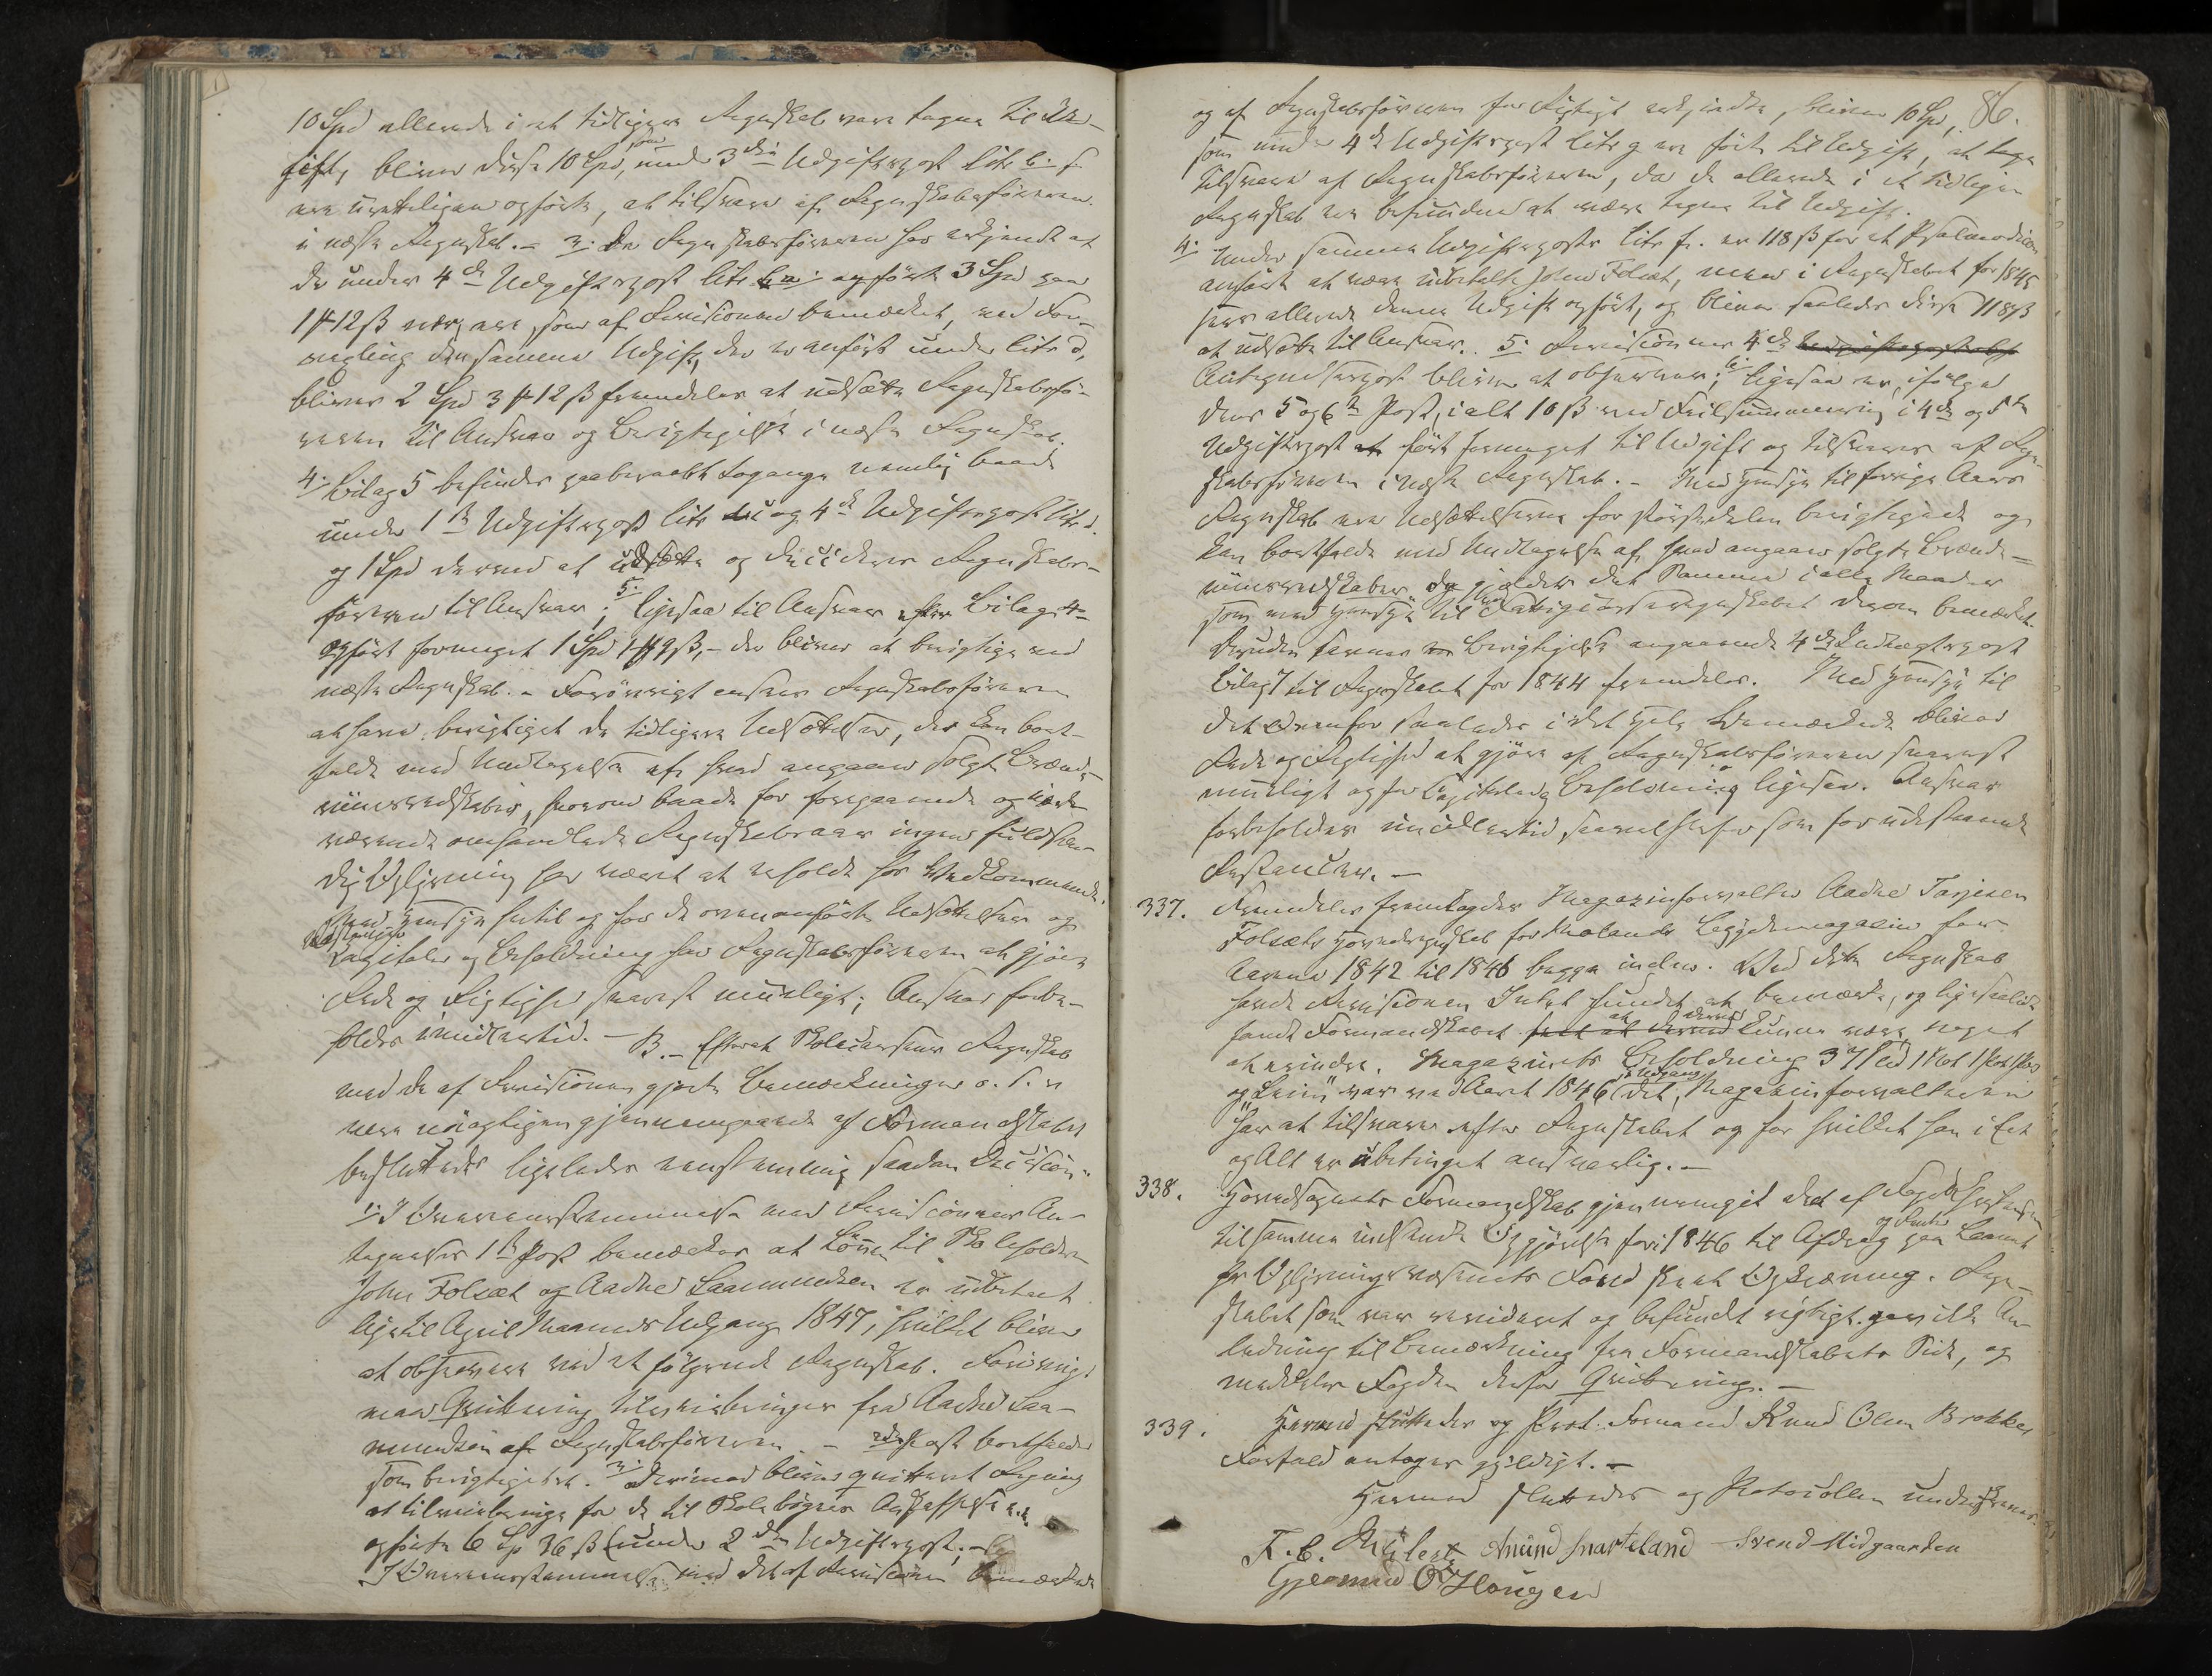 10 Spd allerede i et tidligere Regnskab være tagne til Ud-
gift, bliver disse 10 Spd, som under 3die Udgiftspost Litr b. f
ere urettelig opførte, at tilsvare af Regnskabsføreren
i næste Regnskab. – 3: Da Regnskabsføreren har erkjendt at
de under 4de Udgiftspost litr a: opførte 3 Spd paa
12 ß nær, ere, som af Revisionen bemærket, ved For-
vexling den samme Udgift, der er anført under litr d,
bliver 2 Spd 3 # 12 ß fremdeles at udsætte Regnskabsfø-
reren til Ansvar og Berigtigelse i næste Regnskab.
4: Bilag 5 befindes paaberaabt togange nemlig baade
under 1ste Udgiftspost litr i og 4de Udgiftspost litr d.
og 1 Spd derved at udsætte og decideres Regnskabs-
føreren til Ansvar; 5: ligesaa til Ansvar efter Bilag 4
opført formeget 1 Spd 1 # 9 ß, – der bliver at berigtige ved
næste Regnskab. – Forøvrigt ansees Regnskabsføreren
at have berigtiget de tidligere Udsættelser, der kan bort-
falde med Undtagelse af hvad angaaer solgte Brænde-
viinsredskaber, hvorom baade for foregaaende og nær-
værende omhandlede Regnskabsaar ingen fuldstæn-
dig Oplysning har været at erholde hos Vedkommende.
Med Hensyn hertil og for de ovenanførte Udsættelser og
Capitaler og Beholdning har Regnskabsføreren at gjøre
Rede og Rigtighed snarest mueligt; Ansvar forbe-
holdes imidlertid. – B. – Efterat Skolecassens Regnskab
med de af Revisionen gjorte Bemærkninger o. s. v.
vare nøiagtigen gjennemgaaede af Formandskabet
besluttedes ligeledes eenstemmig saadan Decision:
1: I Overeensstemmelse med Revisionens An-
tegnelses 1ste Post bemærkes at Løn til Skoleholder
John Folsæt og Aadne Saamundsen er udbetalt
lige til April Maaneds Udgang 1847, hvilket bliver
at observere ved et følgende Regnskab. Forøvrigt
maa Qvittering tilveiebringes fra Aadne Saa-
mundsen af Regnskabsføreren. – 2den Post bortfalder
som berigtiget. 3: Derimod bliver qvitteret Regning
at tilveiebringe for de til Skolebøgers Anskaffelse
opførte 6 Sp 36 ß under 2den Udgiftspost. –
I Overeensstemmelse med det af Revisionen bemærkede
86.
og af Regnskabsføreren for Rigtigt erkjendte, bliver 10 Spd,
som under 4de Udgiftspost litr g ere førte til Udgift, at tage
tilsvare af Regnskabsføreren, da de allerede i et tidligere
Regnskab ere befundne at være tagne til Udgift.
4: Under samme Udgiftsposts litr h. er 118 ß for et Psalmodicon
anført at være udbetalt John Folsæt, men i Regnskabet for 1845
sees allerede denne Udgift opført, og bliver saaledes disse 118 ß
at udsætte til Ansvar. 5: Revisionens 4de
Antegnelsespost bliver at observere; 6: ligesaa er, ifølge
dens 5 og 6te Post, ialt 10 ß ved Feilsummering i 4de og 5te
Udgiftspost ført formeget til Udgift og tilsvares af Regn-
skabsføreren i næste Regnskab. – Med Hensyn til forrige Aars
Regnskab ere Udsættelserne for størstedelen berigtigede og
kan bortfalde med Undtagelse af hvad angaaer solgte Brænde-
viinsredskaber, da gjælder det Samme i alle Maader
som med Hensyn til Fattigcasseregnskabet derom bemærket.
Desuden savnes Berigtigelse angaaende 4de Indtægtspost
Bilag 1 til Regnskabet for 1844 fremdeles. Med Hensyn til
det Ovenfor saaledes i det Hele Bemærkede bliver
Rede og Rigtighed at gjøre af Regnskabsføreren snarest
mueligt og for Capitalen og Beholdning ligesaa. Ansvar
forbeholdes imidlertid saavel herfor som for udestaaende
Restancer. –
337. Fremdeles fremlagdes Magazinforvalter Aadne Tarjesen
Folsæts Hovedregnskab for Molands Bygdemagazin for
Aarene 1842 til 1846 begge inclus. Ved dette Regnskab
havde Revisionen Intet fundet at bemærke, og ligesaalidt
fandt Formandskabet at derved kunne være noget
at erindre. Magazinets Beholdning
og Laan var ved Aaret 1846 Udgang det, Magazinforvalteren
har at tilsvare efter Regnskabet og for hvilket han i Eet
og Alt er ubetinget ansvarlig. –
338. Hovedsognets Formandskab gjennemgik det af Fogden
tilsammen indsendte Opgjørelse for 1846 til Afdrag og Renter paa Laanet
fr Oplysningsvæsenets Fond Opkrævning. Regn-
skabet som var revideret og befundet rigtigt, gav ikke An-
ledning til Bemærkning fra Formandskabets Side, og
meddeles Fogden derfor Qvittering. –
339. Hermed sluttedes og Prot. Formand Knud Olsen Brokkes
Forfald antoges gyldigt. –
Hermed sluttedes og Protocollen underskreves.
Anund Svarteland Svend Midgaarden
Gjermund O Hougen